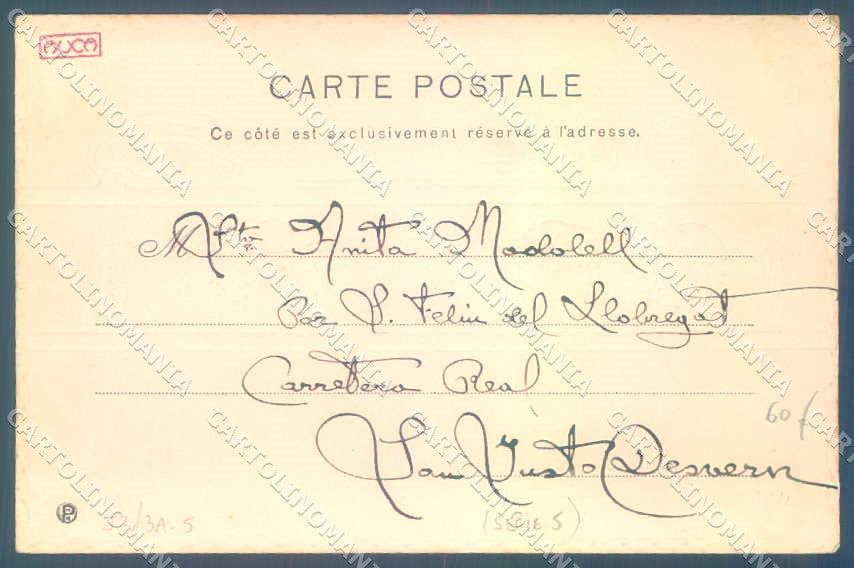 MUCA
CARTE POSTALE
Ce côté est exclusivement réservé à l'adresse.
Anita Modolell
Por S. Feliu del Llobregat
Carretera Real
60 f
San Justo Desvern
53/3A-5
(SERIE 5)
CARTOLINOMANIA